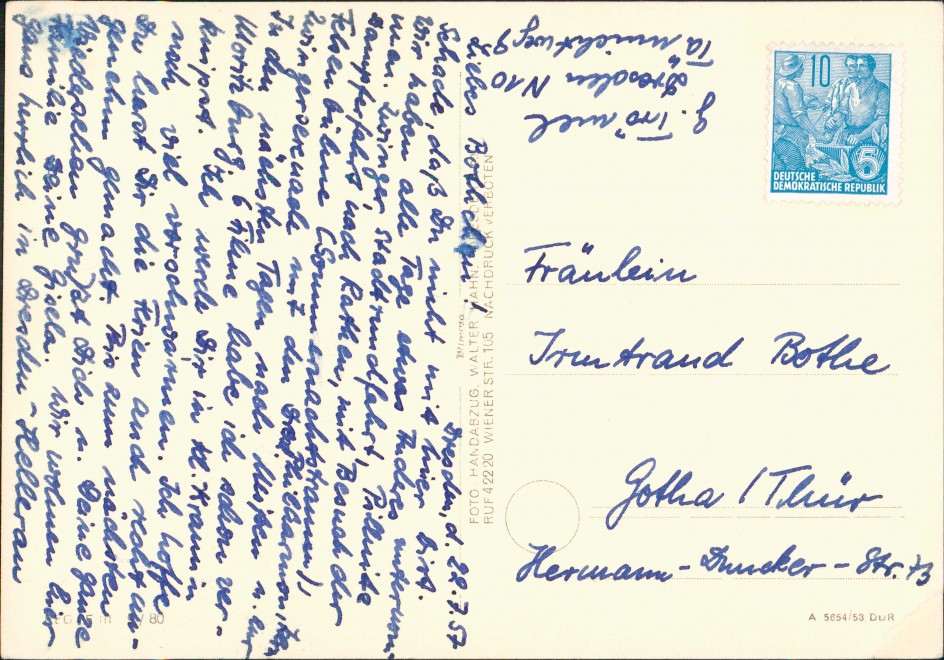 Dresden, d. 22.7.57
Liebes Bothchen!
Schade, daß Du nicht mit hier bist.
Wir haben alle Tage etwas Andres unternom-
men. Zwinger, Stadtrundfahrt, Pillnitz
Dampferfahrt nach Rathen, mit Besuch der
Felsenbühne (Sommernachtstraum),
Zwingerserenade mit den Dresd. Philharmonikern
In den nächsten Tagen nach Meißen u. zur
Moritzburg. 6 Filme habe ich schon ver-
knipst. Ich werde Dir in Kl.
noch viel vorschwärmen. Ich hoffe
Du hast Dir die Ferien auch recht an-
genehm gemacht. Bis zum nächsten
Wiedersehen grüßt Dich u. Deine ganze
Familie Deine Gisela. Wir wohnen hier
ganz herrlich in Dresden-Hellerau
G. Trömel
Dresden N 10
Tännichtweg 9
10
5
DEUTSCHE
DEMOKRATISCHE REPUBLIK
Fräulein
Irmtraud Bothe
Gotha / Thür
Hermann-Duncker-Str. 73
FOTO HANDABZUG, WALTER HAHN,
RUF 42220 WIENER STR. 105 NACHDRUCK VERBOTEN
80
A 5654/53 DDR